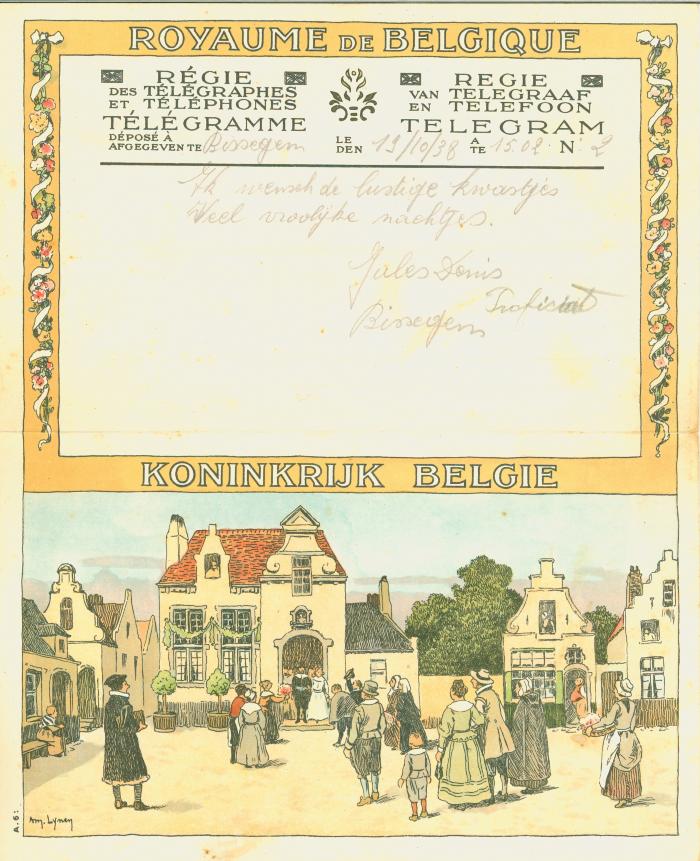 ROYAUME DE BELGIQUE
RÉGIE
DES TÉLÉGRAPHES
ET TÉLÉPHONES
TÉLÉGRAMME
DÉPOSÉ À
AFGEGEVEN TE Bissegem
REGIE
VAN TELEGRAAF
EN TELEFOON
TELEGRAM
LE
DEN 19/10/38 A
TE 15.02 N° 2
Ik wensch de lustige kwastjes
Veel vroolijke nachtjes.
Jules Denis
Proficiat
Bissegem
KONINKRIJK BELGIE
A.6:
Am. Lynen